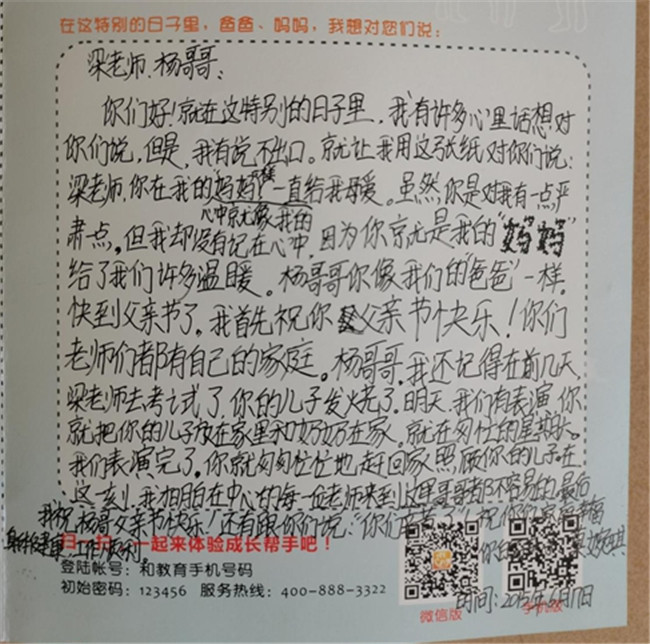 在这特别的日子里，爸爸、妈妈，我想对您们说：
梁老师、杨哥哥：
你们好！就在这特别的日子里，我有许多心里话想对
你们说，但是，我有说不出口。就让我用这张纸对你们说：
梁老师，你在我的“妈妈”一样一直给我母爱。虽然，你是对我有一点严
心中就像我的
肃点。但我却没有记在心中，因为你就是我的“妈妈”
给了我们许多温暖。杨哥哥你像我们的“爸爸”一样，
快到父亲节了，我首先祝你父亲节快乐！你们
老师们都有自己的家庭。杨哥哥，我还记得在前几天
梁老师去考试了，你的儿子发烧了。明天，我们有表演，你
就把你的儿子放在家里和奶奶在家。就在匆忙的星期六，
我们表演完了，你就匆匆忙忙地赶回家照顾你的儿子在
这一刻，我相明白在中心的每一位老师来到这里哥哥都不容易的，最后
我祝杨哥父亲节快乐！还有跟你们说：“你们辛苦了”！祝你们家庭幸福
身体健康，工作顺利。
扫一扫，一起来体验成长帮手吧！
你的
登陆帐号：和教育手机号码
初始密码：123456 服务热线：400-888-3322
微信版 手机版
时间：2015年6月17日